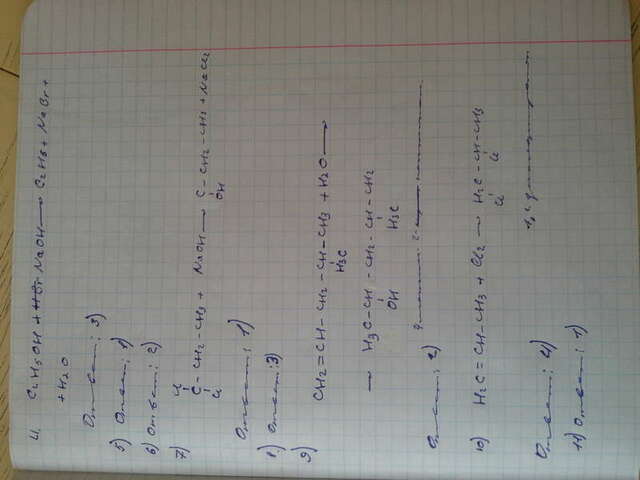 4. C2H5OH + HBr NaOH → C2H5 + NaBr +
+ H2O
Ответ: 3)
5) Ответ: 1)
6) Ответ: 2)
7) Cl
C – CH2 – CH3 + NaOH → C – CH2 – CH3 + NaCl2
Cl OH
Ответ: 1)
8) Ответ: 3)
9) CH2=CH – CH2 – CH – CH3 + H2O →
H3C
→ H3C – CH – CH2 – CH – CH2
OH H3C
Ответ: 2)
10) H2C = CH – CH3 + Cl2 → H2C – CH – CH3
Cl Cl
Ответ: 4)
11) Ответ: 1)